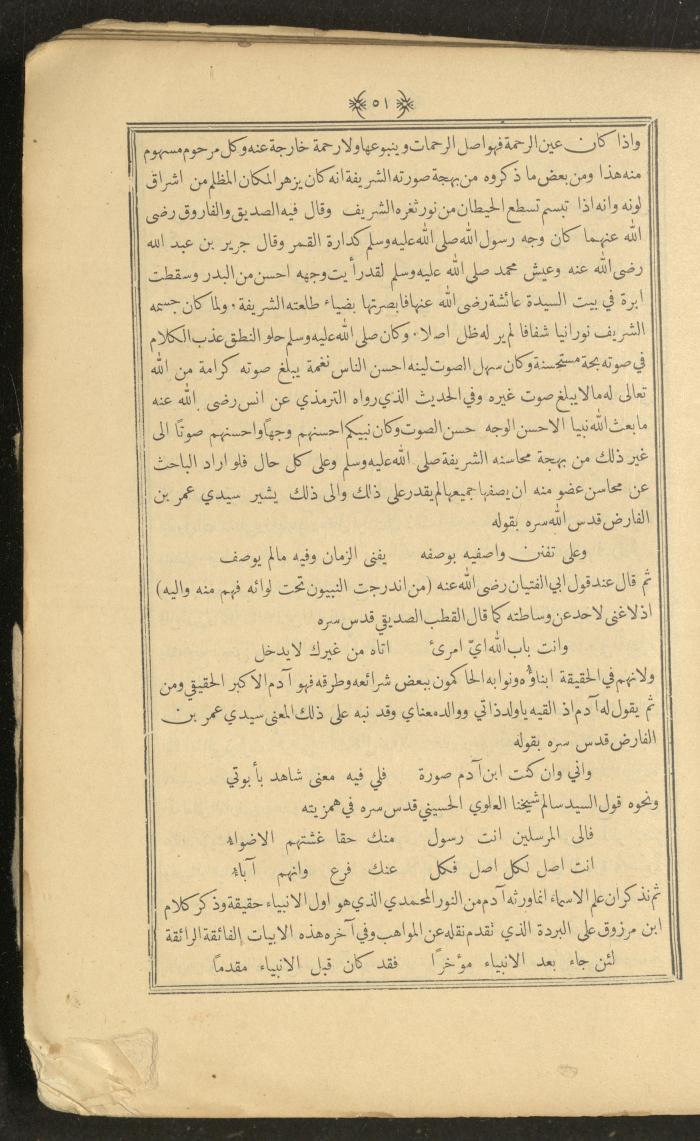 ﴿٥١﴾
واذا كان عين الرحمة فهو اصل الرحمات وينبوعها ولا رحمة خارجة عنه وكل مرحوم مسهوم
منه هذا ومن بعض ما ذكروه من بهجة صورته الشريفة انه كان يزهر المكان المظلم من اشراق
لونه وانه اذا تبسم تسطع الحيطان من نور ثغره الشريف وقال فيه الصديق والفاروق رضى
الله عنهما كان وجه رسول الله صلى الله عليه وسلم كدارة القمر وقال جرير بن عبد الله
رضى الله عنه وعيش محمد صلى الله عليه وسلم لقد رأيت وجهه احسن من البدر وسقطت
ابرة في بيت السيدة عائشة رضى الله عنها فابصرتها بضياء طلعته الشريفة. ولما كان جسمه
الشريف نورانيا شفافا لم ير له ظل اصلا. وكان صلى الله عليه وسلم حلو النطق عذب الكلام
في صوته بحة مستحسنة وكان سهل الصوت لينه احسن الناس نغمة يبلغ صوته كرامة من الله
تعالى له مالا يبلغ صوت غيره وفي الحديث الذي رواه الترمذي عن انس رضى الله عنه
ما بعث الله نبيا الا حسن الوجه حسن الصوت وكان نبيكم احسنهم وجهًا واحسنهم صوتًا الى
غير ذلك من بهجة محاسنه الشريفة صلى الله عليه وسلم وعلى كل حال فلو اراد الباحث
عن محاسن عضو منه ان يصفها جميعها لم يقدر على ذلك والى ذلك يشير سيدي عمر بن
الفارض قدس الله سره بقوله
وعلى تفنن واصفيه بوصفه يفنى الزمان وفيه مالم يوصف
ثم قال عند قول ابي الفتيان رضى الله عنه (من اندرجت النبيون تحت لوائه فهم منه واليه)
اذ لا غنى لاحد عن وساطته كما قال القطب الصديقي قدس سره
وانت باب الله ايّ امرئ اتاه من غيرك لا يدخل
ولانهم في الحقيقة ابناؤه ونوابه الحاكمون ببعض شرائعه وطرقه فهو آدم الأكبر الحقيقي ومن
ثم يقول له آدم اذ القيه يا ولد ذاتي ووالد معناي وقد نبه على ذلك المعنى سيدي عمر بن
الفارض قدس سره بقوله
واني وان كنت ابن آدم صورة فلي فيه معنى شاهد بأبوتي
ونحوه قول السيد سالم شيخنا العلوي الحسيني قدس سره في همزيته
فالى المرسلين انت رسول منك حقا غشتهم الاضواء
انت اصل لكل اصل فكل عنك فرع وانهم آباء
ثم نذكر ان علم الاسماء انما ورثه آدم من النور المحمدي الذي هو اول الانبياء حقيقة وذكر كلام
ابن مرزوق على البردة الذي تقدم نقله عن المواهب وفي آخره هذه الابيات الفائقة الرائقة
لئن جاء بعد الانبياء مؤخرًا فقد كان قبل الانبياء مقدمًا